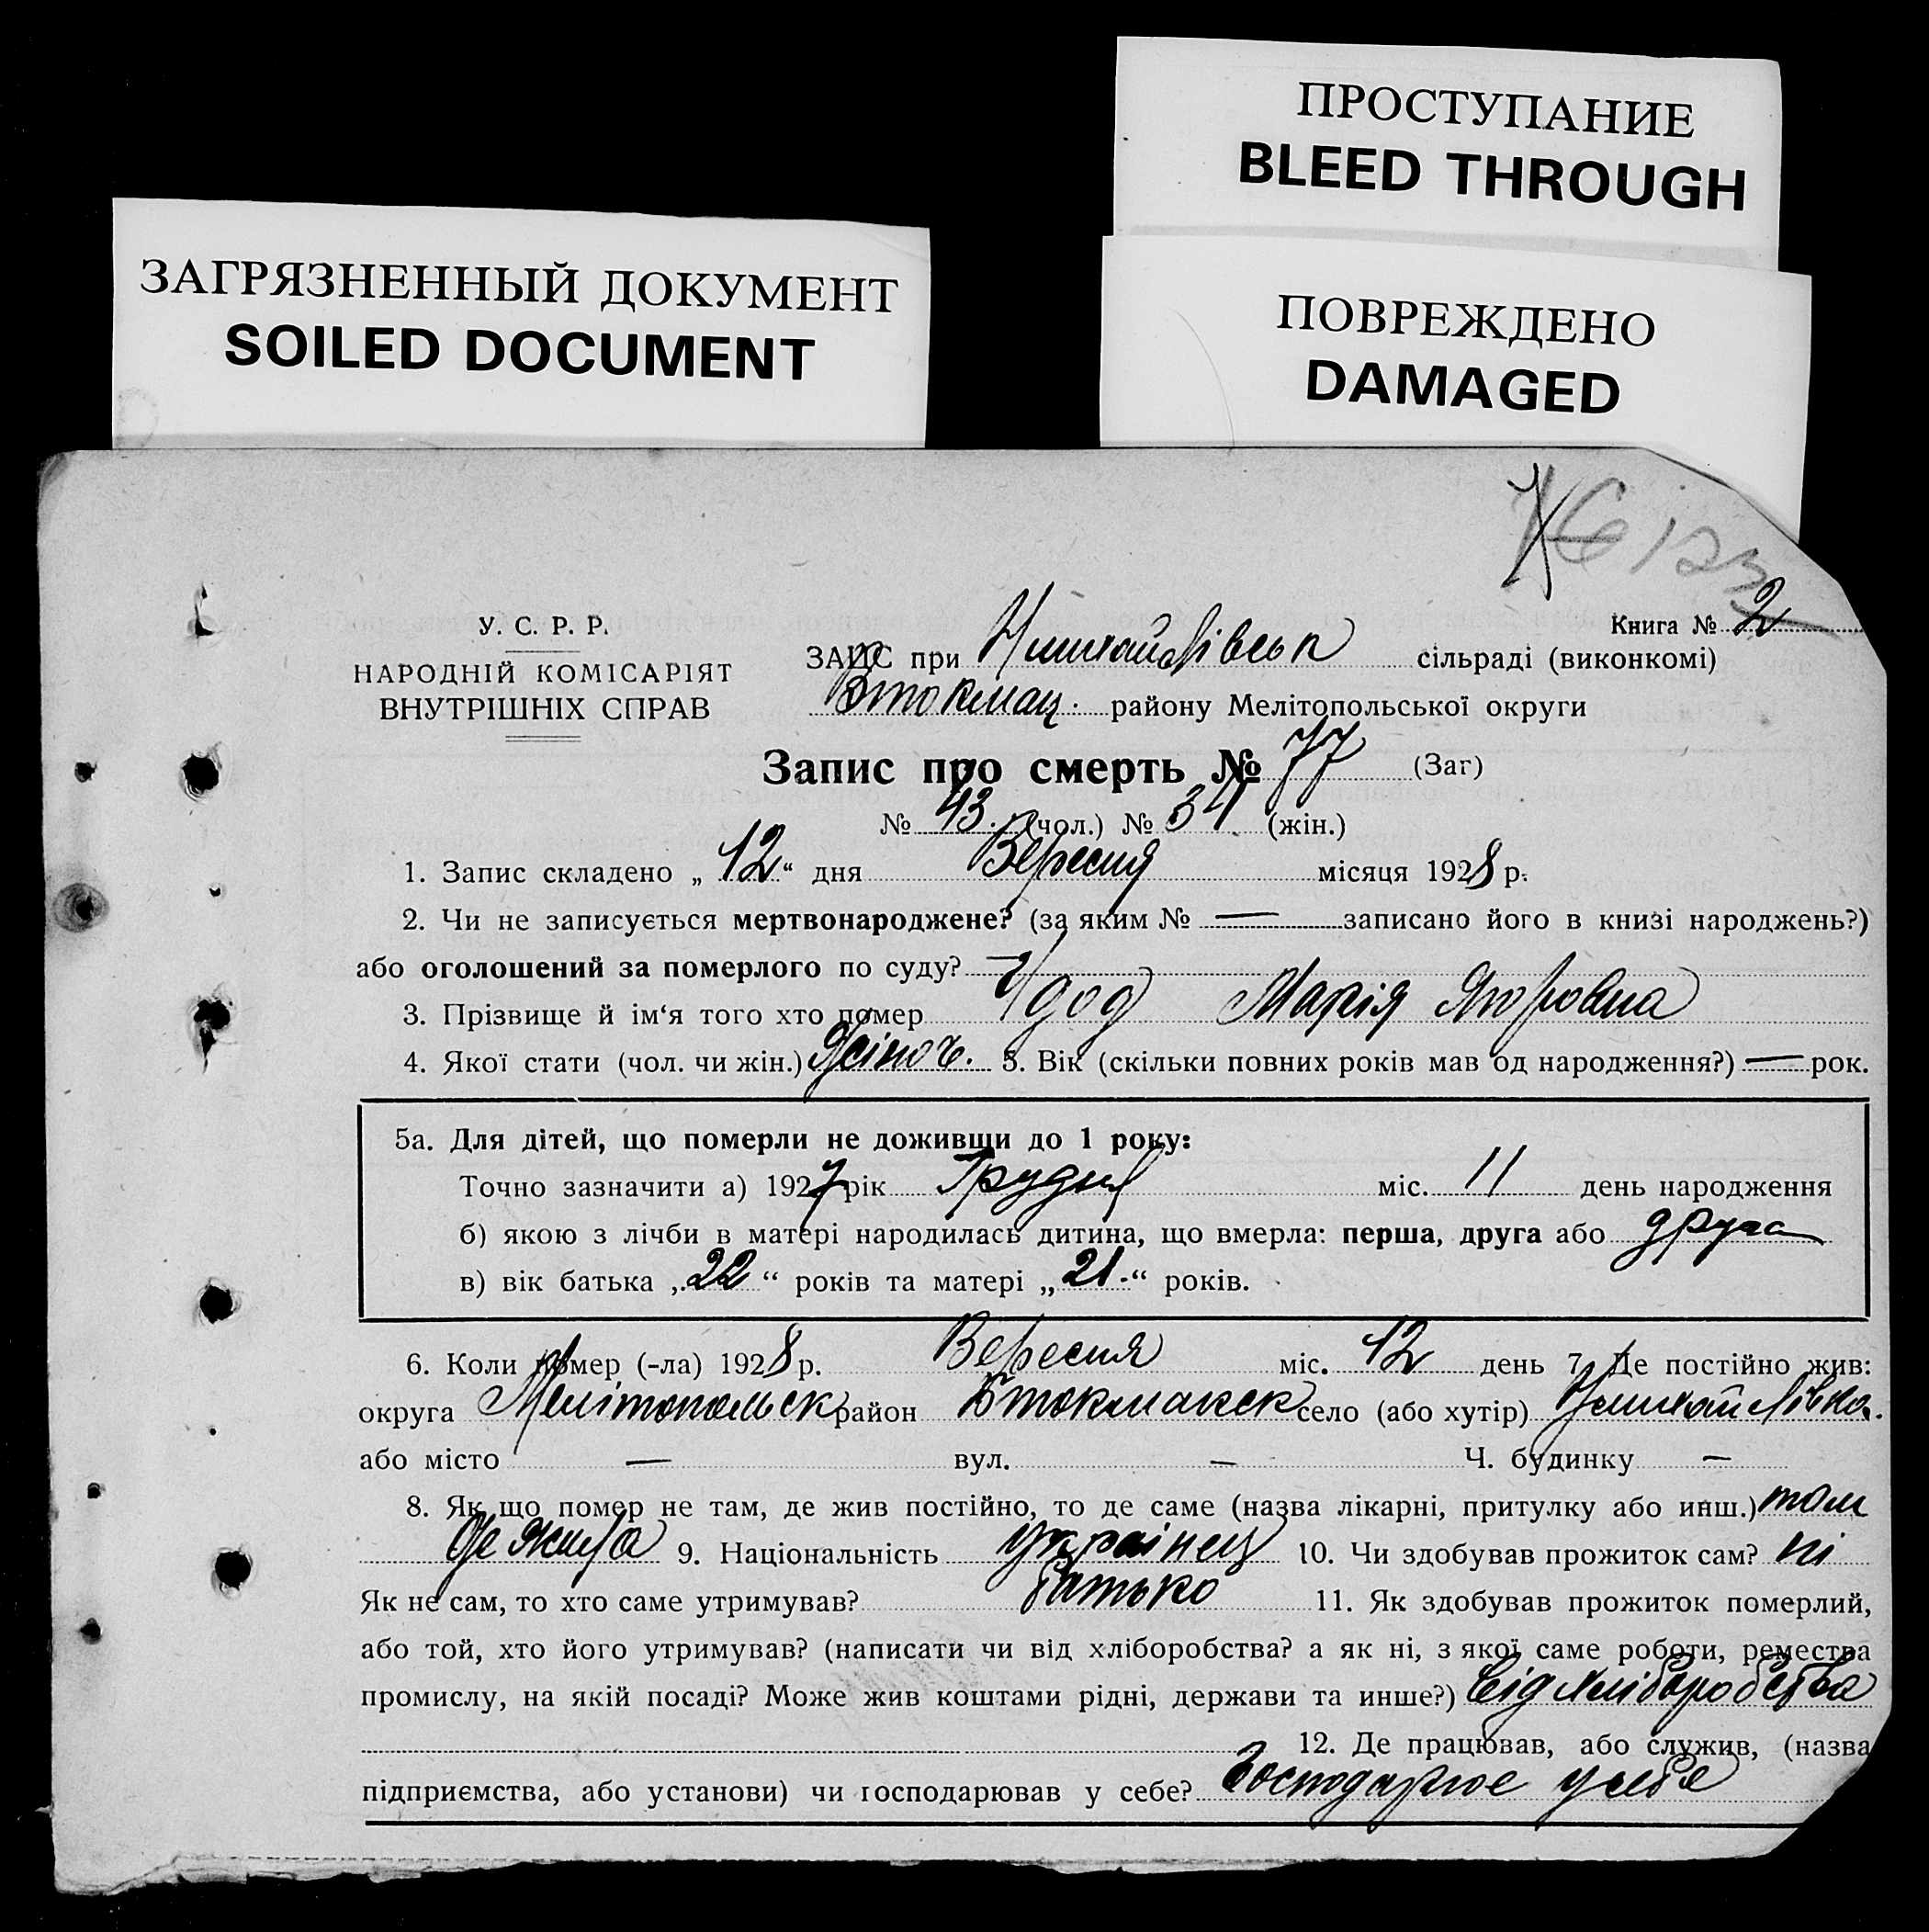 ПРОСТУПАНИЕ
BLEED THROUGH
ЗАГРЯЗНЕННЫЙ ДОКУМЕНТ
SOILED DOCUMENT
ПОВРЕЖДЕНО
DAMAGED
У. С. Р. Р.
НАРОДНІЙ КОМІСАРІЯТ
ВНУТРІШНІХ СПРАВ
Книга № 2
ЗАГС при сільраді (виконкомі)
Втокмац. району Мелітопольської округи
Запис про смерть № 77 (Заг)
№ 43. (чол.) № 34 (жін.)
1. Запис складено „ 12 “ дня Вересня місяця 1928 р.
2. Чи не записується мертвонароджене? (за яким № — записано його в книзі народжень?)
або оголошений за померлого по суду? —
3. Прізвище й ім‘я того хто помер Удод Марія Ягоровна
4. Якої стати (чол. чи жін.) Жіноч. 5. Вік (скільки повних років мав од народження?) — рок.
5а. Для дітей, що померли не доживши до 1 року:
Точно зазначити а) 1927 рік Грудня міс. 11 день народження
б) якою з лічби в матері народилась дитина, що вмерла: перша, друга або друга
в) вік батька „ 22 “ років та матері „ 21. “ років.
6. Коли помер (-ла) 1928 р. Вересня міс. 12 день 7. Де постійно жив:
округа Мелітопольск район Втокмакск село (або хутір)
або місто — вул. — Ч. будинку —
8. Як що помер не там, де жив постійно, то де саме (назва лікарні, притулку або инш.) там
де жила 9. Національність українец 10. Чи здобував прожиток сам? ні
Як не сам, то хто саме утримував? батько 11. Як здобував прожиток померлий,
або той, хто його утримував? (написати чи від хліборобства? а як ні, з якої саме роботи, ремества
промислу, на якій посаді? Може жив коштами рідні, держави та инше?) від хліборобства
12. Де працював, або служив, (назва
підприємства, або установи) чи господарював у себе? Господарює у себе